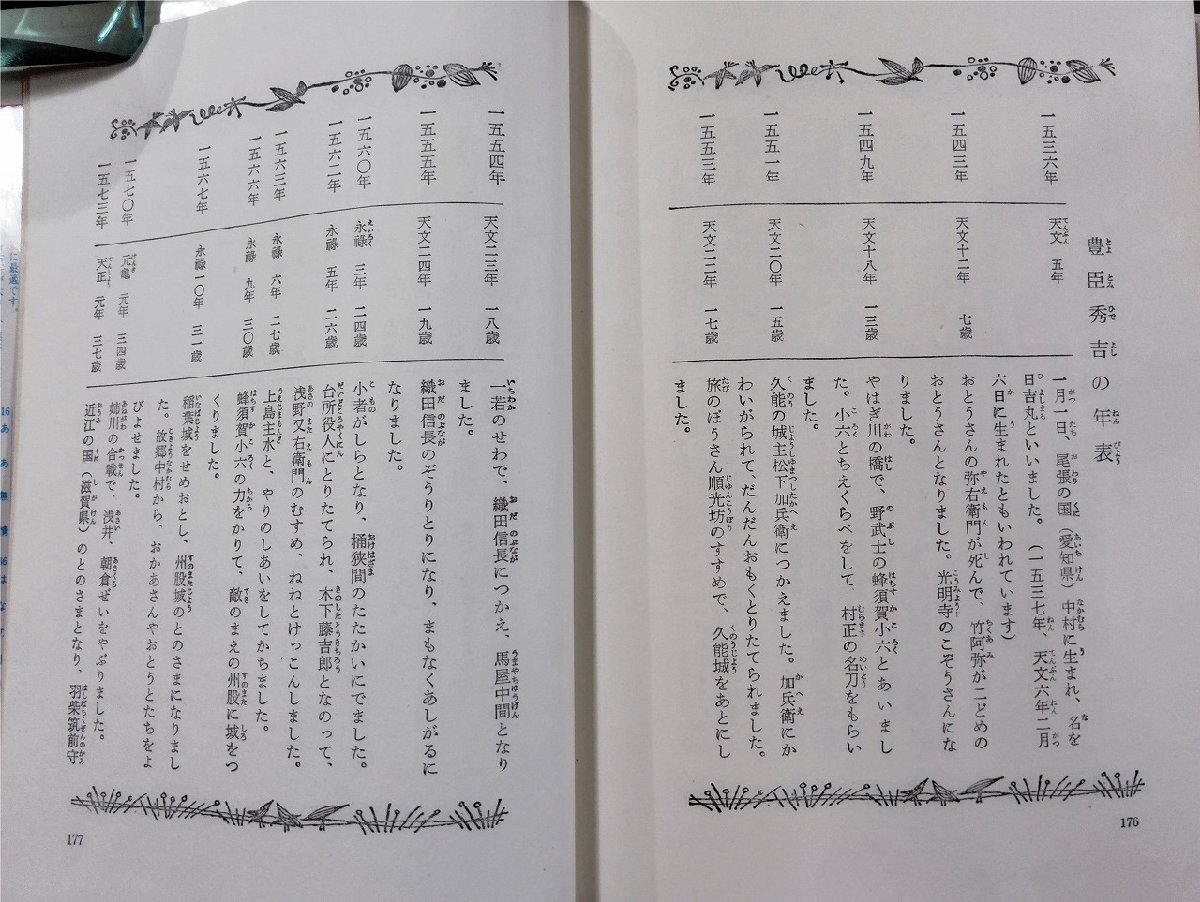 豊臣秀吉の年表
一五三六年 天文 五年 一月一日、尾張の国（愛知県）中村に生まれ、名を
日吉丸といいました。（一五三七年、天文六年二月
六日に生まれたともいわれています）
一五四三年 天文十二年 七歳 おとうさんの弥右衛門が死んで、竹阿弥が二どめの
おとうさんとなりました。光明寺のこぞうさんにな
りました。
一五四九年 天文十八年 一三歳 やはぎ川の橋で、野武士の蜂須賀小六とあいまし
た。小六とちえくらべをして、村正の名刀をもらい
ました。
一五五一年 天文二〇年 一五歳 久能の城主松下加兵衛につかえました。加兵衛にか
わいがられて、だんだんおもくとりたてられました。
一五五三年 天文二二年 一七歳 旅のぼうさん順光坊のすすめで、久能城をあとにし
ました。
176
一五五四年 天文二三年 一八歳 一若のせわで、織田信長につかえ、馬屋中間となり
ました。
一五五五年 天文二四年 一九歳 織田信長のぞうりとりになり、まもなくあしがるに
なりました。
一五六〇年 永禄 三年 二四歳 小者がしらとなり、桶狭間のたたかいにでました。
一五六二年 永禄 五年 二六歳 台所役人にとりたてられ、木下藤吉郎となのって、
浅野又右衛門のむすめ、ねねとけっこんしました。
一五六三年 永禄 六年 二七歳 上島主水と、やりのしあいをしてかちました。
一五六六年 永禄 九年 三〇歳 蜂須賀小六の力をかりて、敵のまえの州股に城をつ
くりました。
一五六七年 永禄一〇年 三一歳 稲葉城をせめおとし、州股城のとのさまになりまし
た。故郷中村から、おかあさんやおとうとたちをよ
びよせました。
一五七〇年 元亀 元年 三四歳 姉川の合戦で、浅井、朝倉ぜいをやぶりました。
一五七三年 天正 元年 三七歳 近江の国（滋賀県）のとのさまとなり、羽柴筑前守
177
に最適です。
16 あ あ 無 情